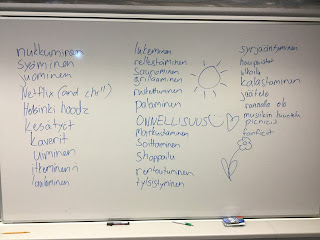 nukkuminen
syöminen
juominen
Netflix (and chill)
Helsinki hoodz
kesätyöt
kaverit
uiminen
itkeminen
laulaminen
lukeminen
reissaaminen
saunominen
grillaaminen
rusketuminen
palaminen
ONNELLISUUS
matkustaminen
Soittaminen
Shoppailu
rentoutuminen
tylsistyminen
syrjäytyminen
kaupustelu
ulkoilu
kalastaminen
jäätelö
rannalla olo
musiikin kuuntelu
picnicit
fanficit